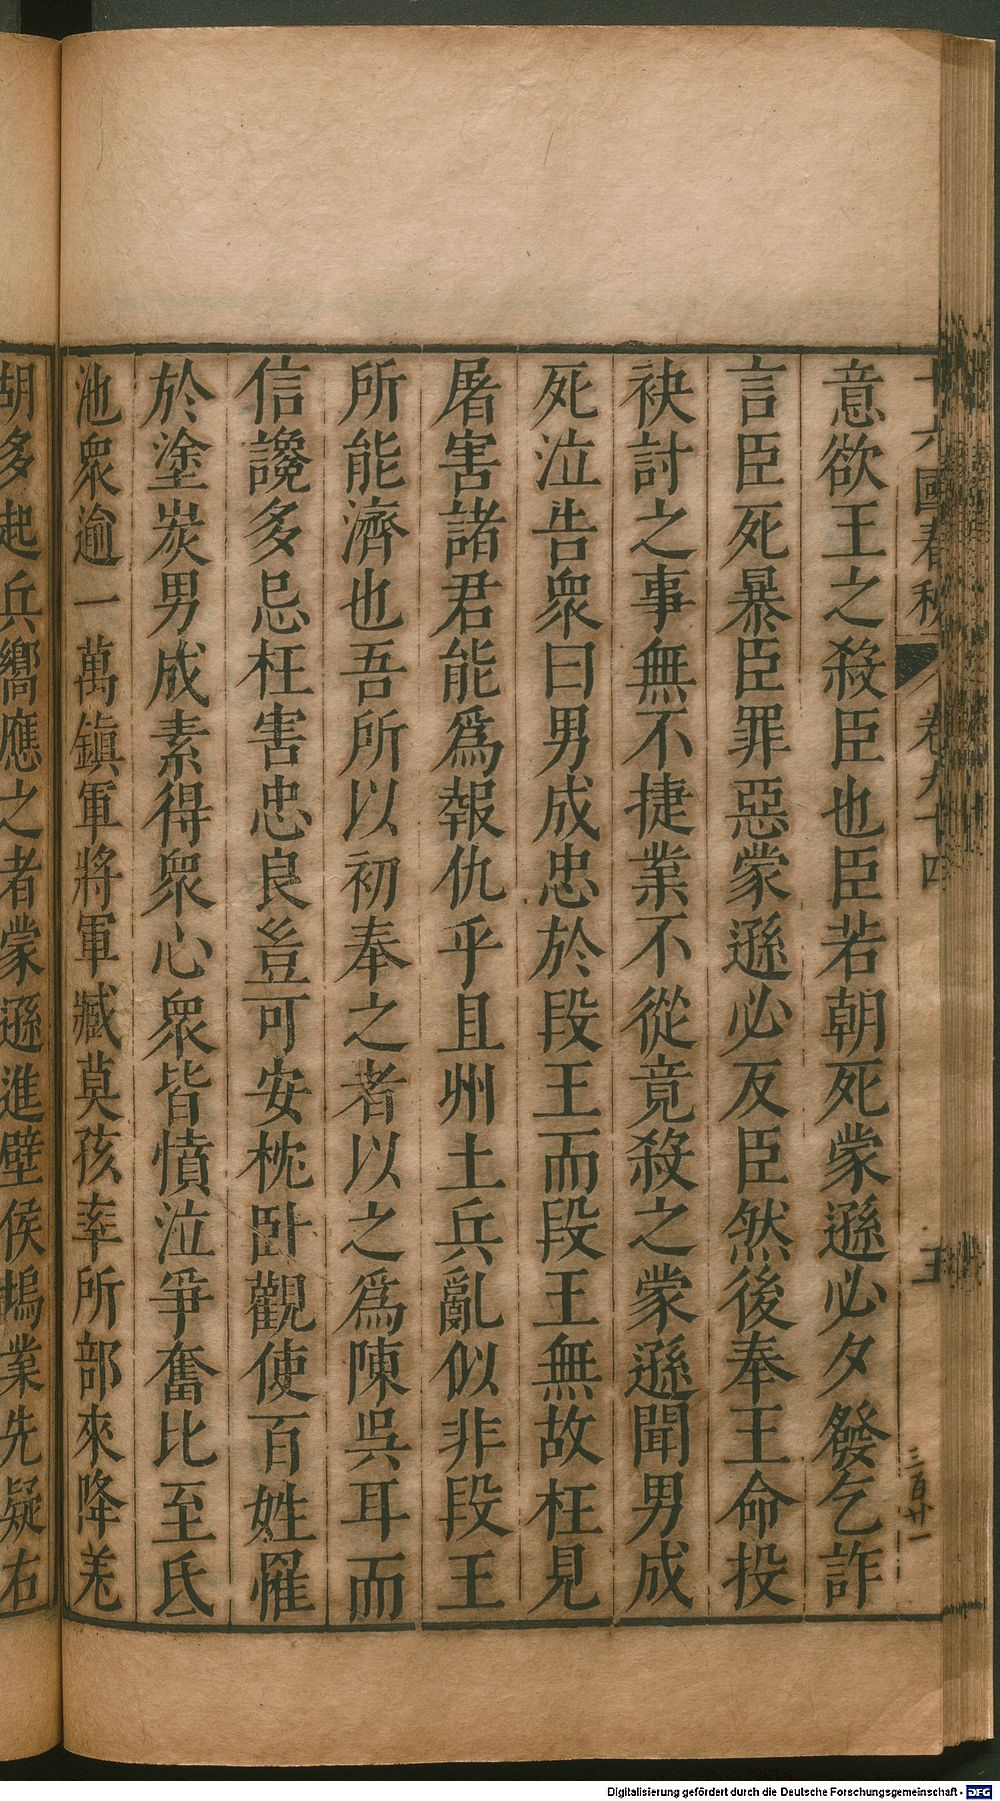 十六國春秋 卷九十四 五
三百廿一
意欲王之殺臣也臣若朝死蒙遜必夕發乞詐
言臣死暴臣罪惡蒙遜必反臣然後奉王命投
袂討之事無不捷業不從竟殺之蒙遜聞男成
死泣告衆曰男成忠於段王而段王無故枉見
屠害諸君能爲報仇乎且州土兵亂似非段王
所能濟也吾所以初奉之者以之爲陳吳耳而
信讒多忌枉害忠良豈可安枕卧觀使百姓罹
於塗炭男成素得衆心衆皆憤泣爭奮比至氐
池衆逾一萬鎮軍將軍臧莫孩率所部來降羌
胡多起兵嚮應之者蒙遜進壁侯塢業先疑右
Digitalisierung gefördert durch die Deutsche Forschungsgemeinschaft - DFG